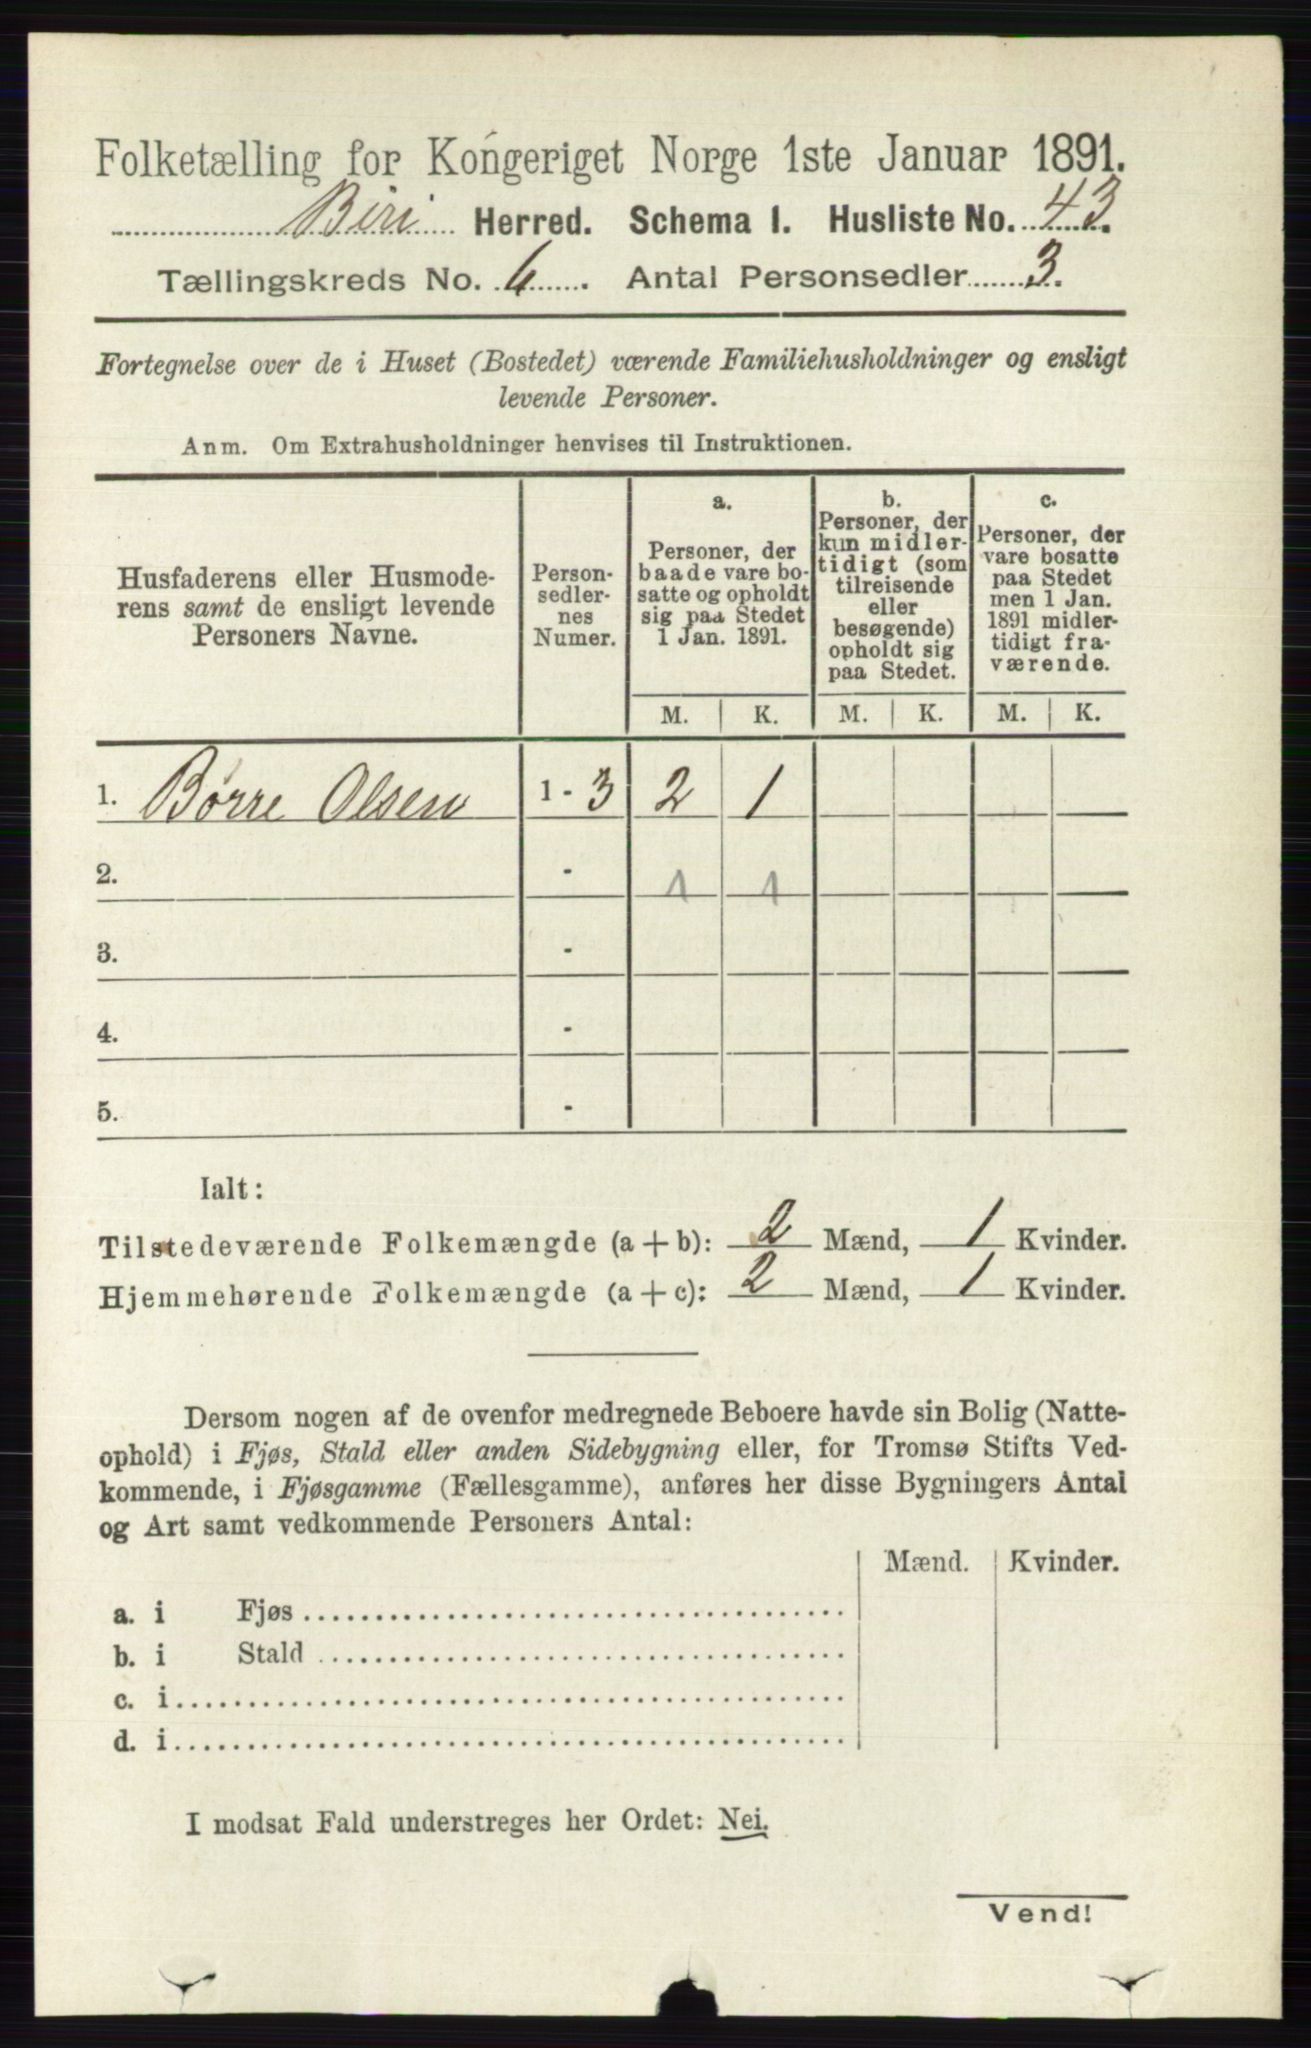 Folketælling for Kongeriget Norge 1ste Januar 1891.
Biri Herred. Schema I. Husliste No. 43.
Tællingskreds No. 6. Antal Personsedler 3.
Fortegnelse over de i Huset (Bostedet) værende Familiehusholdninger og ensligt
levende Personer.
Anm. Om Extrahusholdninger henvises til Instruktionen.
Husfaderens eller Husmode-
rens samt de ensligt levende
Personers Navne.
Person-
sedler-
nes
Numer.
a.
Personer, der
baade vare bo-
satte og opholdt
sig paa Stedet
1 Jan. 1891.
b.
Personer, der
kun midler-
tidigt (som
tilreisende
eller
besøgende)
opholdt sig
paa Stedet.
c.
Personer, der
vare bosatte
paa Stedet
men 1 Jan.
1891 midler-
tidigt fra-
værende.
M. K. M. K. M. K.
1. Børre Olsen 1 - 3 2 1
2. - 1 1
3. -
4. -
5. -
Ialt:
Tilstedeværende Folkemængde (a + b): 2 Mænd, 1 Kvinder.
Hjemmehørende Folkemængde (a + c): 2 Mænd, 1 Kvinder.
Dersom nogen af de ovenfor medregnede Beboere havde sin Bolig (Natte-
ophold) i Fjøs, Stald eller anden Sidebygning eller, for Tromsø Stifts Ved-
kommende, i Fjøsgamme (Fællesgamme), anføres her disse Bygningers Antal
og Art samt vedkommende Personers Antal:
Mænd. Kvinder.
a. i Fjøs
b. i Stald
c. i
d. i
I modsat Fald understreges her Ordet: Nei.
Vend!